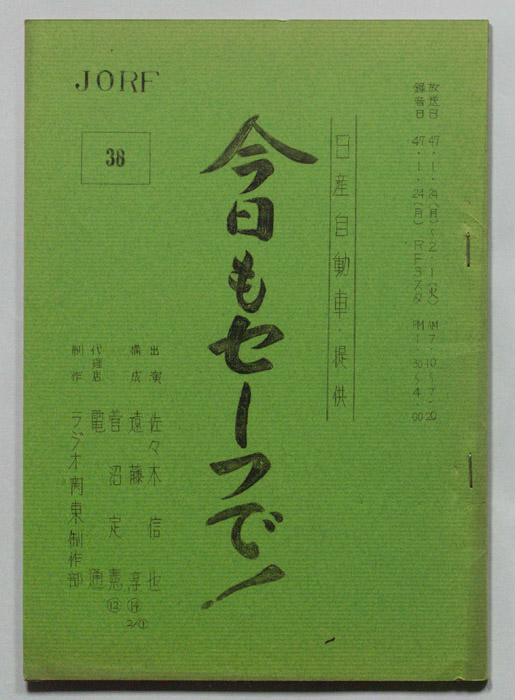 JORF
36
放送日 47・1・24(月)～2・1(火) AM7・10～7・20
録音日 47・1・24(月) RF3スタ PM1・30～4・00
日産自動車・提供
今日もセーフで！
出演 佐々木信也
構成 遠藤享⑭ 2/①
菅沼定憲⑬
代理店 電通
制作 ラジオ関東制作部